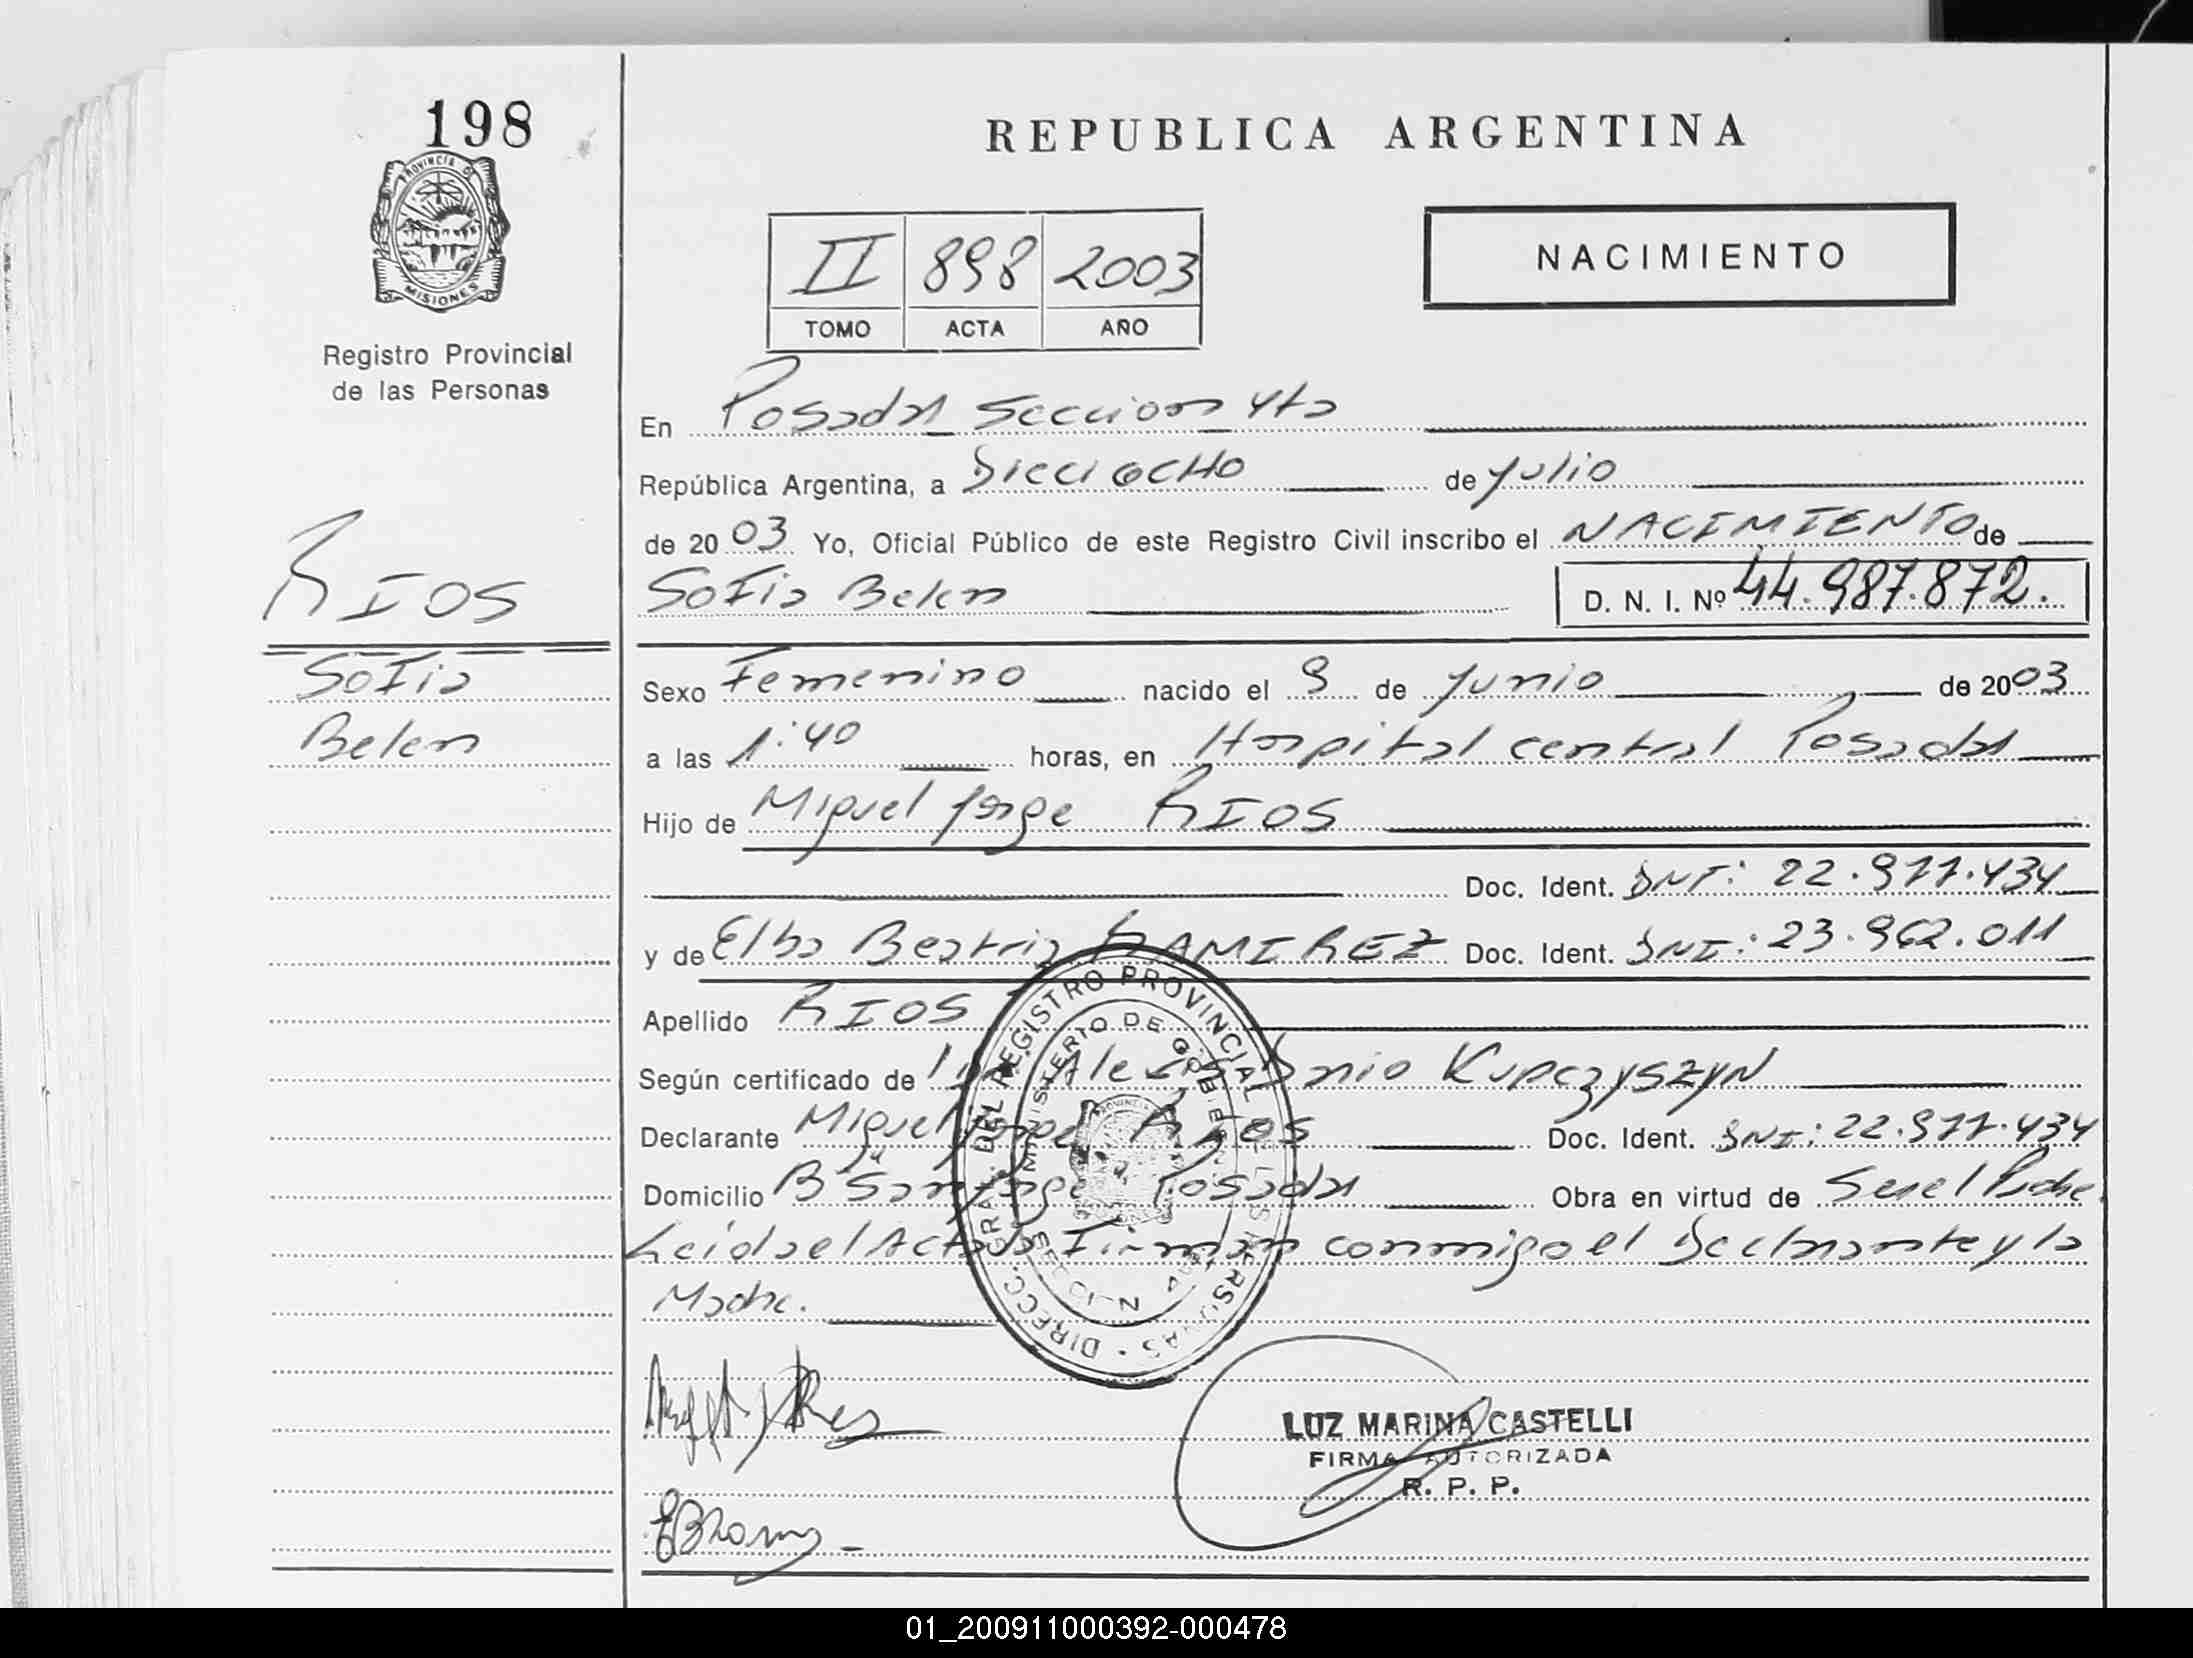 198
PROVINCIA DE
MISIONES
Registro Provincial
de las Personas
RIOS
Sofia
Belen
REPUBLICA ARGENTINA
NACIMIENTO
II 898 2003
TOMO ACTA AÑO
En Posadas Seccion 4ta
República Argentina, a Dieciocho de Julio
de 2003 Yo, Oficial Público de este Registro Civil inscribo el NACIMIENTO de
Sofia Belen D. N. I. Nº 44.987.872.
Sexo Femenino nacido el 9 de Junio de 2003
a las 1:40 horas, en Hospital central Posadas
Hijo de Miguel Jorge RIOS
Doc. Ident. DNI: 22.977.434
y de Elba Beatriz RAMIREZ Doc. Ident. DNI: 23.962.011
Apellido RIOS
Según certificado de Kupczyszyn
Declarante Miguel Jorge Rios Doc. Ident. DNI: 22.977.434
Domicilio Bº San Jorge Posadas Obra en virtud de Ser el Padre
Leida el Acta Firman conmigo el Declarante y la
Madre.
DIRECC. GRAL. DEL REGISTRO PROVINCIAL DE LAS PERSONAS
MINISTERIO DE GOBIERNO
LUZ MARINA CASTELLI
FIRMA AUTORIZADA
R. P. P.
01_200911000392-000478